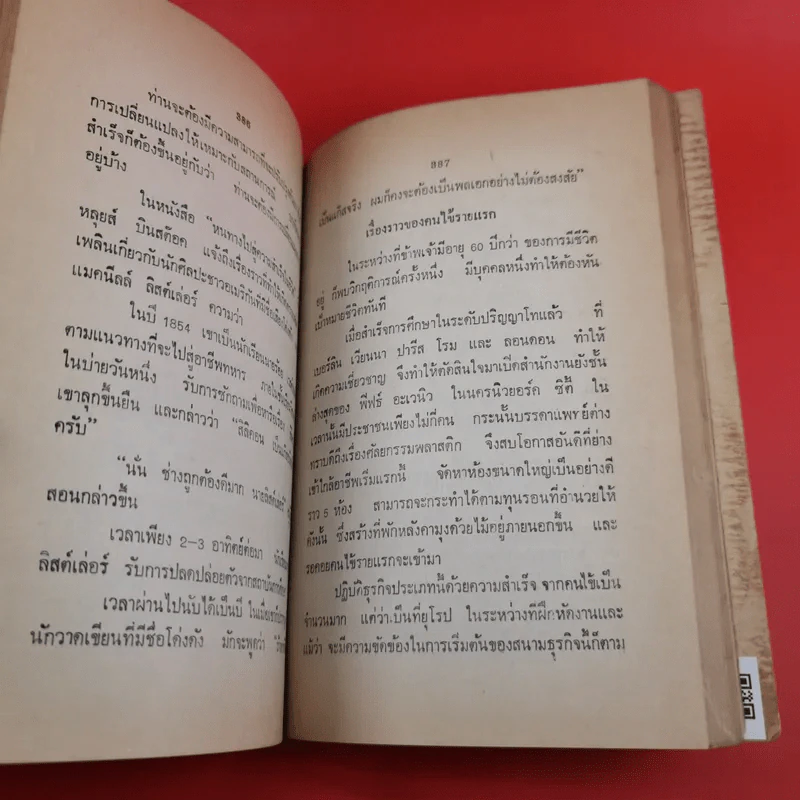 386
ท่านจะต้องมีความสามารถที่จะ
การเปลี่ยนแปลงให้เหมาะกับสถานการณ์
สำเร็จก็ต้องขึ้นอยู่กับว่า ท่านจะต้อง
อยู่บ้าง
ในหนังสือ "หนทางไปสู่ความสำเร็จ
หลุยส์ บินสต๊อค แจ้งถึงเรื่องราวที่ทำให้เกิด
เพลินเกี่ยวกับนักศิลปะชาวอเมริกันที่มีชื่อเสียง
แมคนีลล์ ลิสต์เล่อร์ ความว่า
ในปี 1854 เขาเป็นนักเรียนนายร้อย
ตามแนวทางที่จะไปสู่อาชีพทหาร ภายใน
ในบ่ายวันหนึ่ง รับการซักถามเพื่อ
เขาลุกขึ้นยืน และกล่าวว่า "ลิลิคอน
ครับ"
"นั่น ช่างถูกต้องดีมาก นายลิสต์เล่อร์"
สอนกล่าวขึ้น
เวลาเพียง 2-3 อาทิตย์ต่อมา
ลิสต์เล่อร์ รับการปลดปล่อยตัวจากสถาบัน
เวลาผ่านไปนับได้เป็นปี ในเมื่อ
นักวาดเขียนที่มีชื่อโด่งดัง มักจะพูดว่า
387
เป็นแก๊สจริง ผมก็คงจะต้องเป็นพลเอกอย่างไม่ต้องสงสัย"
เรื่องราวของคนไข้รายแรก
ในระหว่างที่ข้าพเจ้ามีอายุ 60 ปีกว่า ของการมีชีวิต
อยู่ ก็พบวิกฤติการณ์ครั้งหนึ่ง มีบุคคลหนึ่งทำให้ต้องหัน
เป้าหมายชีวิตทันที
เมื่อสำเร็จการศึกษาในระดับปริญญาโทแล้ว ที่
เบอร์ลิน เวียนนา ปารีส โรม และ ลอนดอน ทำให้
เกิดความเชี่ยวชาญ จึงทำให้ตัดสินใจมาเปิดสำนักงานยังชั้น
ล่างสุดของ ฟิฟธ์ อะเวนิว ในนครนิวยอร์ค ซิตี้ ใน
เวลานั้นมีประชาชนเพียงไม่กี่คน กระนั้นบรรดาแพทย์ต่าง
ทราบดีถึงเรื่องศัลยกรรมพลาสติก จึงสบโอกาสอันดีที่ย่าง
เข้าใกล้อาชีพเริ่มแรกนี้ จัดหาห้องขนาดใหญ่เป็นอย่างดี
ราว 5 ห้อง สามารถจะกระทำได้ตามทุนรอนที่อำนวยให้
ดังนั้น ซึ่งสร้างที่พักหลังคามุงด้วยไม้อยู่ภายนอกขึ้น และ
รอคอยคนไข้รายแรกจะเข้ามา
ปฏิบัติธุรกิจประเภทนี้ด้วยความสำเร็จ จากคนไข้เป็น
จำนวนมาก แต่ว่าเป็นที่ยุโรป ในระหว่างที่ฝึกหัดงานและ
แม้ว่า จะมีความขัดข้องในการเริ่มต้นของสนามธุรกิจนี้ก็ตาม